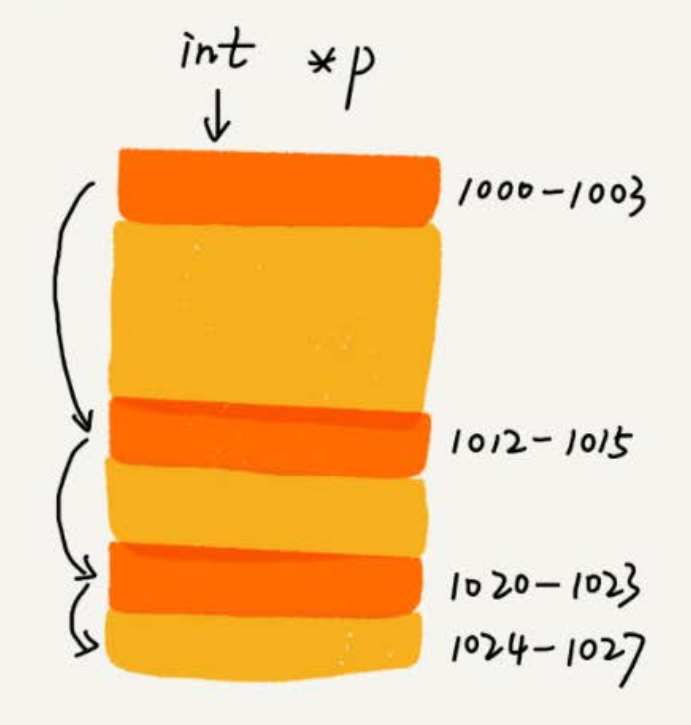 int *p
1000-1003
1012-1015
1020-1023
1024-1027